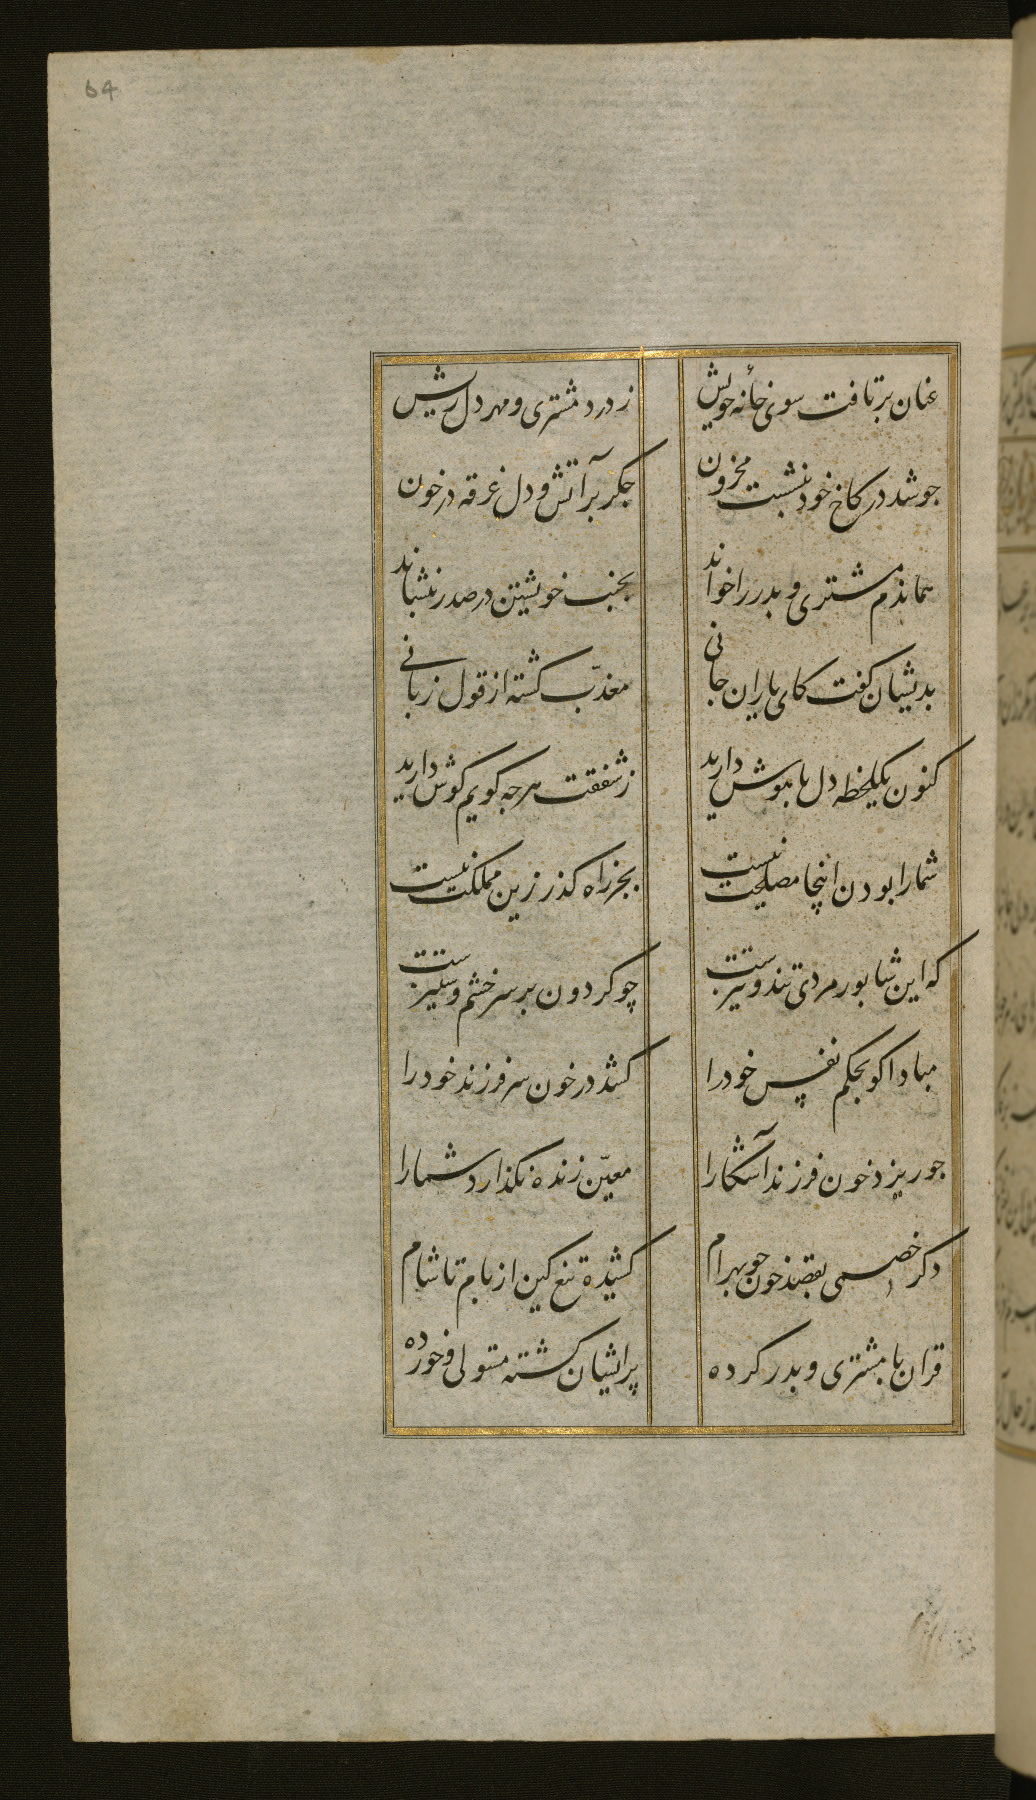 64
عنان برتافت سوی خانه خویش
ز درد مشتری و مهر دل ریش
جو شد در کاخ خود بنشست محزون
جکر بر آتش و دل غرقه در خون
هماندم مشتری و بدر را خواند
بجنب خویشتن در صدر بنشاند
بدیشان کفت کای یاران جانی
معذّب کشته از قول زبانی
کنون یکلحظه دل با هوش دارید
ز شفقت هرجه کویم کوش دارید
شما را بودن اینجا مصلحت نیست
بجز راه کذر زین مملکت نیست
که این شابور مردی تند و تیزست
چو کردون بر سر خشم و ستیزست
مبادا کو بحکم نفس خود را
کشد در خون سر فرزند خود را
جو ریزد خون فرزند آشکارا
معیّن زنده نکذارد شما را
دکر خصمی بقصد خون جو بهرام
کشیده تیغ کین از بام تا شام
قران با مشتری و بدر کرده
برایشان کشته مستولی و خورده